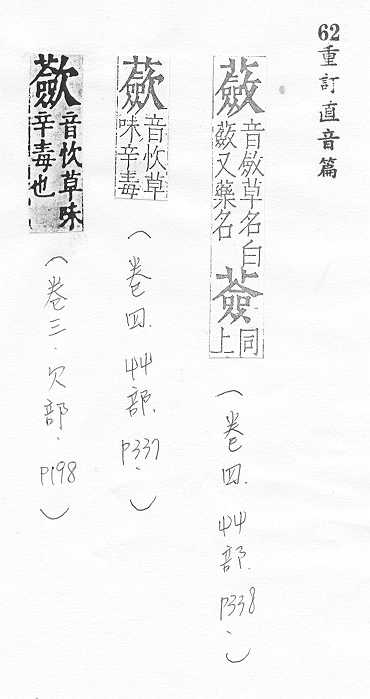 62重訂直音篇
蘞音斂草名白蘞又藥名薟同上
(卷四.艸部.p338.)
蘝音忺草味辛毒
(卷四.艸部.p337.)
音忺草味辛毒也
(卷三.欠部.p198)